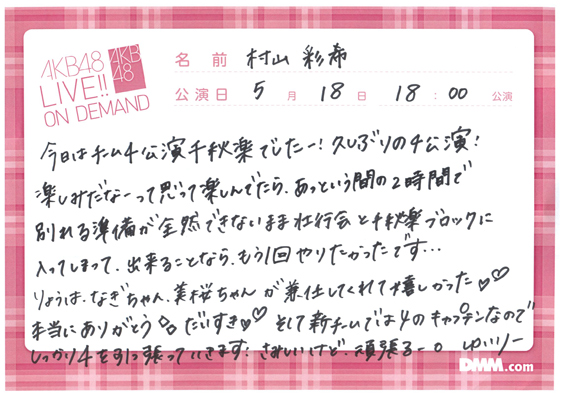 AKB48
LIVE!!
ON DEMAND
AKB
48
名前 村山彩希
公演日 5月18日 18:00 公演
今日はチーム4公演千秋楽でしたー!久しぶりの4公演!
楽しみだなーって思って楽しんでたら、あっという間の2時間で
別れる準備が全然できないまま壮行会と千秋楽ブロックに
入ってしまって、出来ることなら、もう1回やりたかったです…
りょうは、なぎちゃん、美桜ちゃんが兼任してくれて嬉しかった♡♡
本当にありがとう◇◇だいすき♡♡ そして新チームでは4のキャプテンなので
しっかり4を引っ張っていきます! さみしいけど、頑張るー。ゆいりー
DMM.com